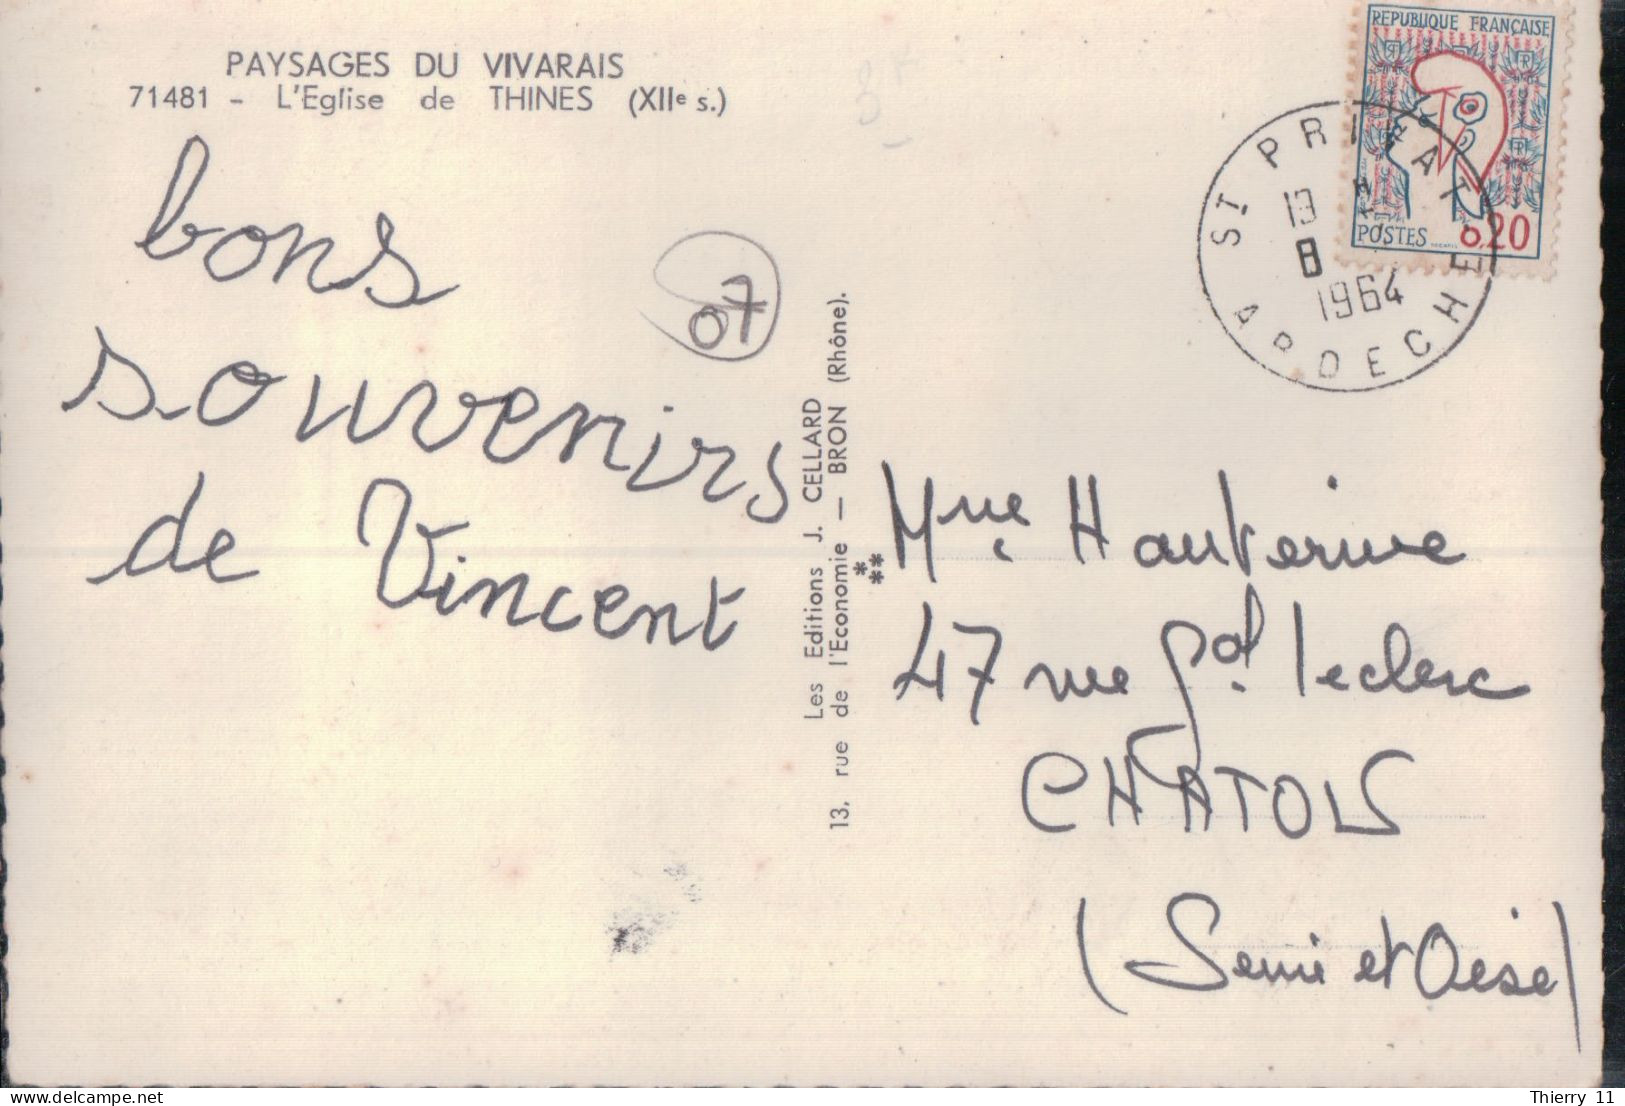 PAYSAGES DU VIVARAIS
71481 - L'Eglise de THINES (XIIe s.)
bons
souvenirs
de Vincent
07
Les Editions J. CELLARD
13, rue de l'Economie - BRON (Rhône).
REPUBLIQUE FRANÇAISE
POSTES 0,20
ST PRIVAT
13
8
1964
ARDECHE
Mme Hauterive
47 rue Gal leclerc
CHATOU
(Seine et Oise)
Thierry 11